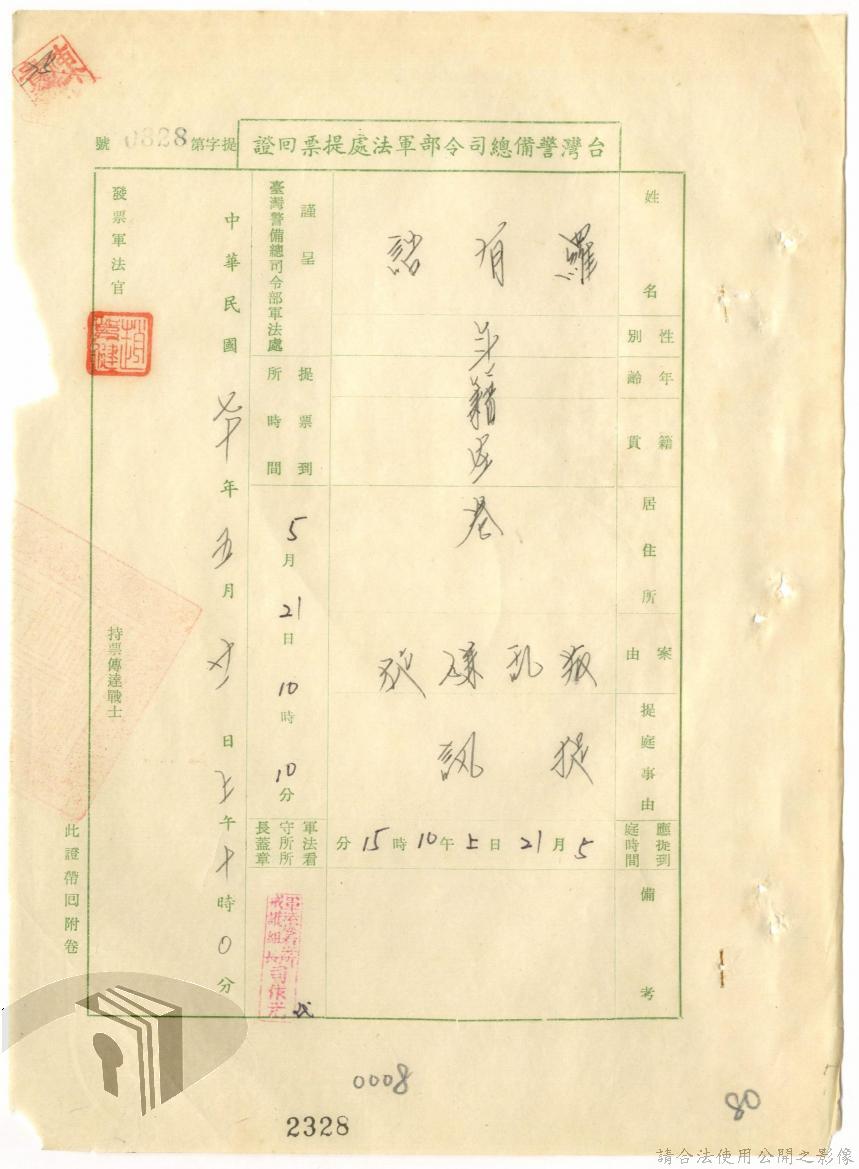 台灣警備總司令部軍法處提票回證
提字第0328號
姓名
羅有諮
性別
年齡
籍貫
居住所
案由
叛亂
提庭事由
提訊
應提到庭時間
5月21日上午10時15分
備考
謹呈
臺灣警備總司令部軍法處
提票到所時間
5月21日10時10分
軍法看守所所長蓋章
中華民國七十年五月廿一日上午十時0分
發票軍法官
持票傳達戰士
此證帶回附卷
0008
2328
80
請合法使用公開之影像